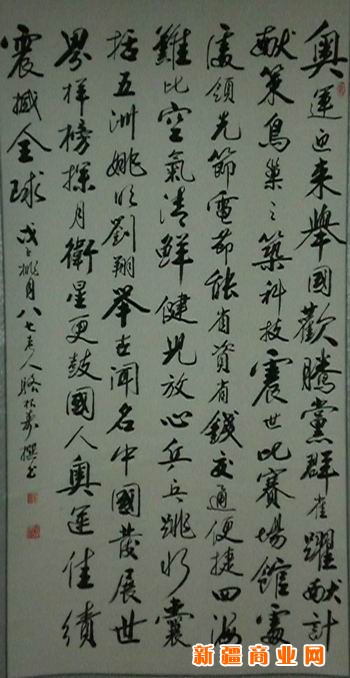 奥運迎来舉國歡騰黨群雀躍献計
献策鳥巢之築科技震世比賽場館處
處領先節電節能省資省錢交通便捷四海
難比空氣清鮮健兒放心乒乓跳水囊
括五洲姚明劉翔舉世聞名中國發展世
界样榜探月衛星更鼓國人奥運佳績
震撼全球 戊子桃月八七老人駱 撰书
新疆商业网